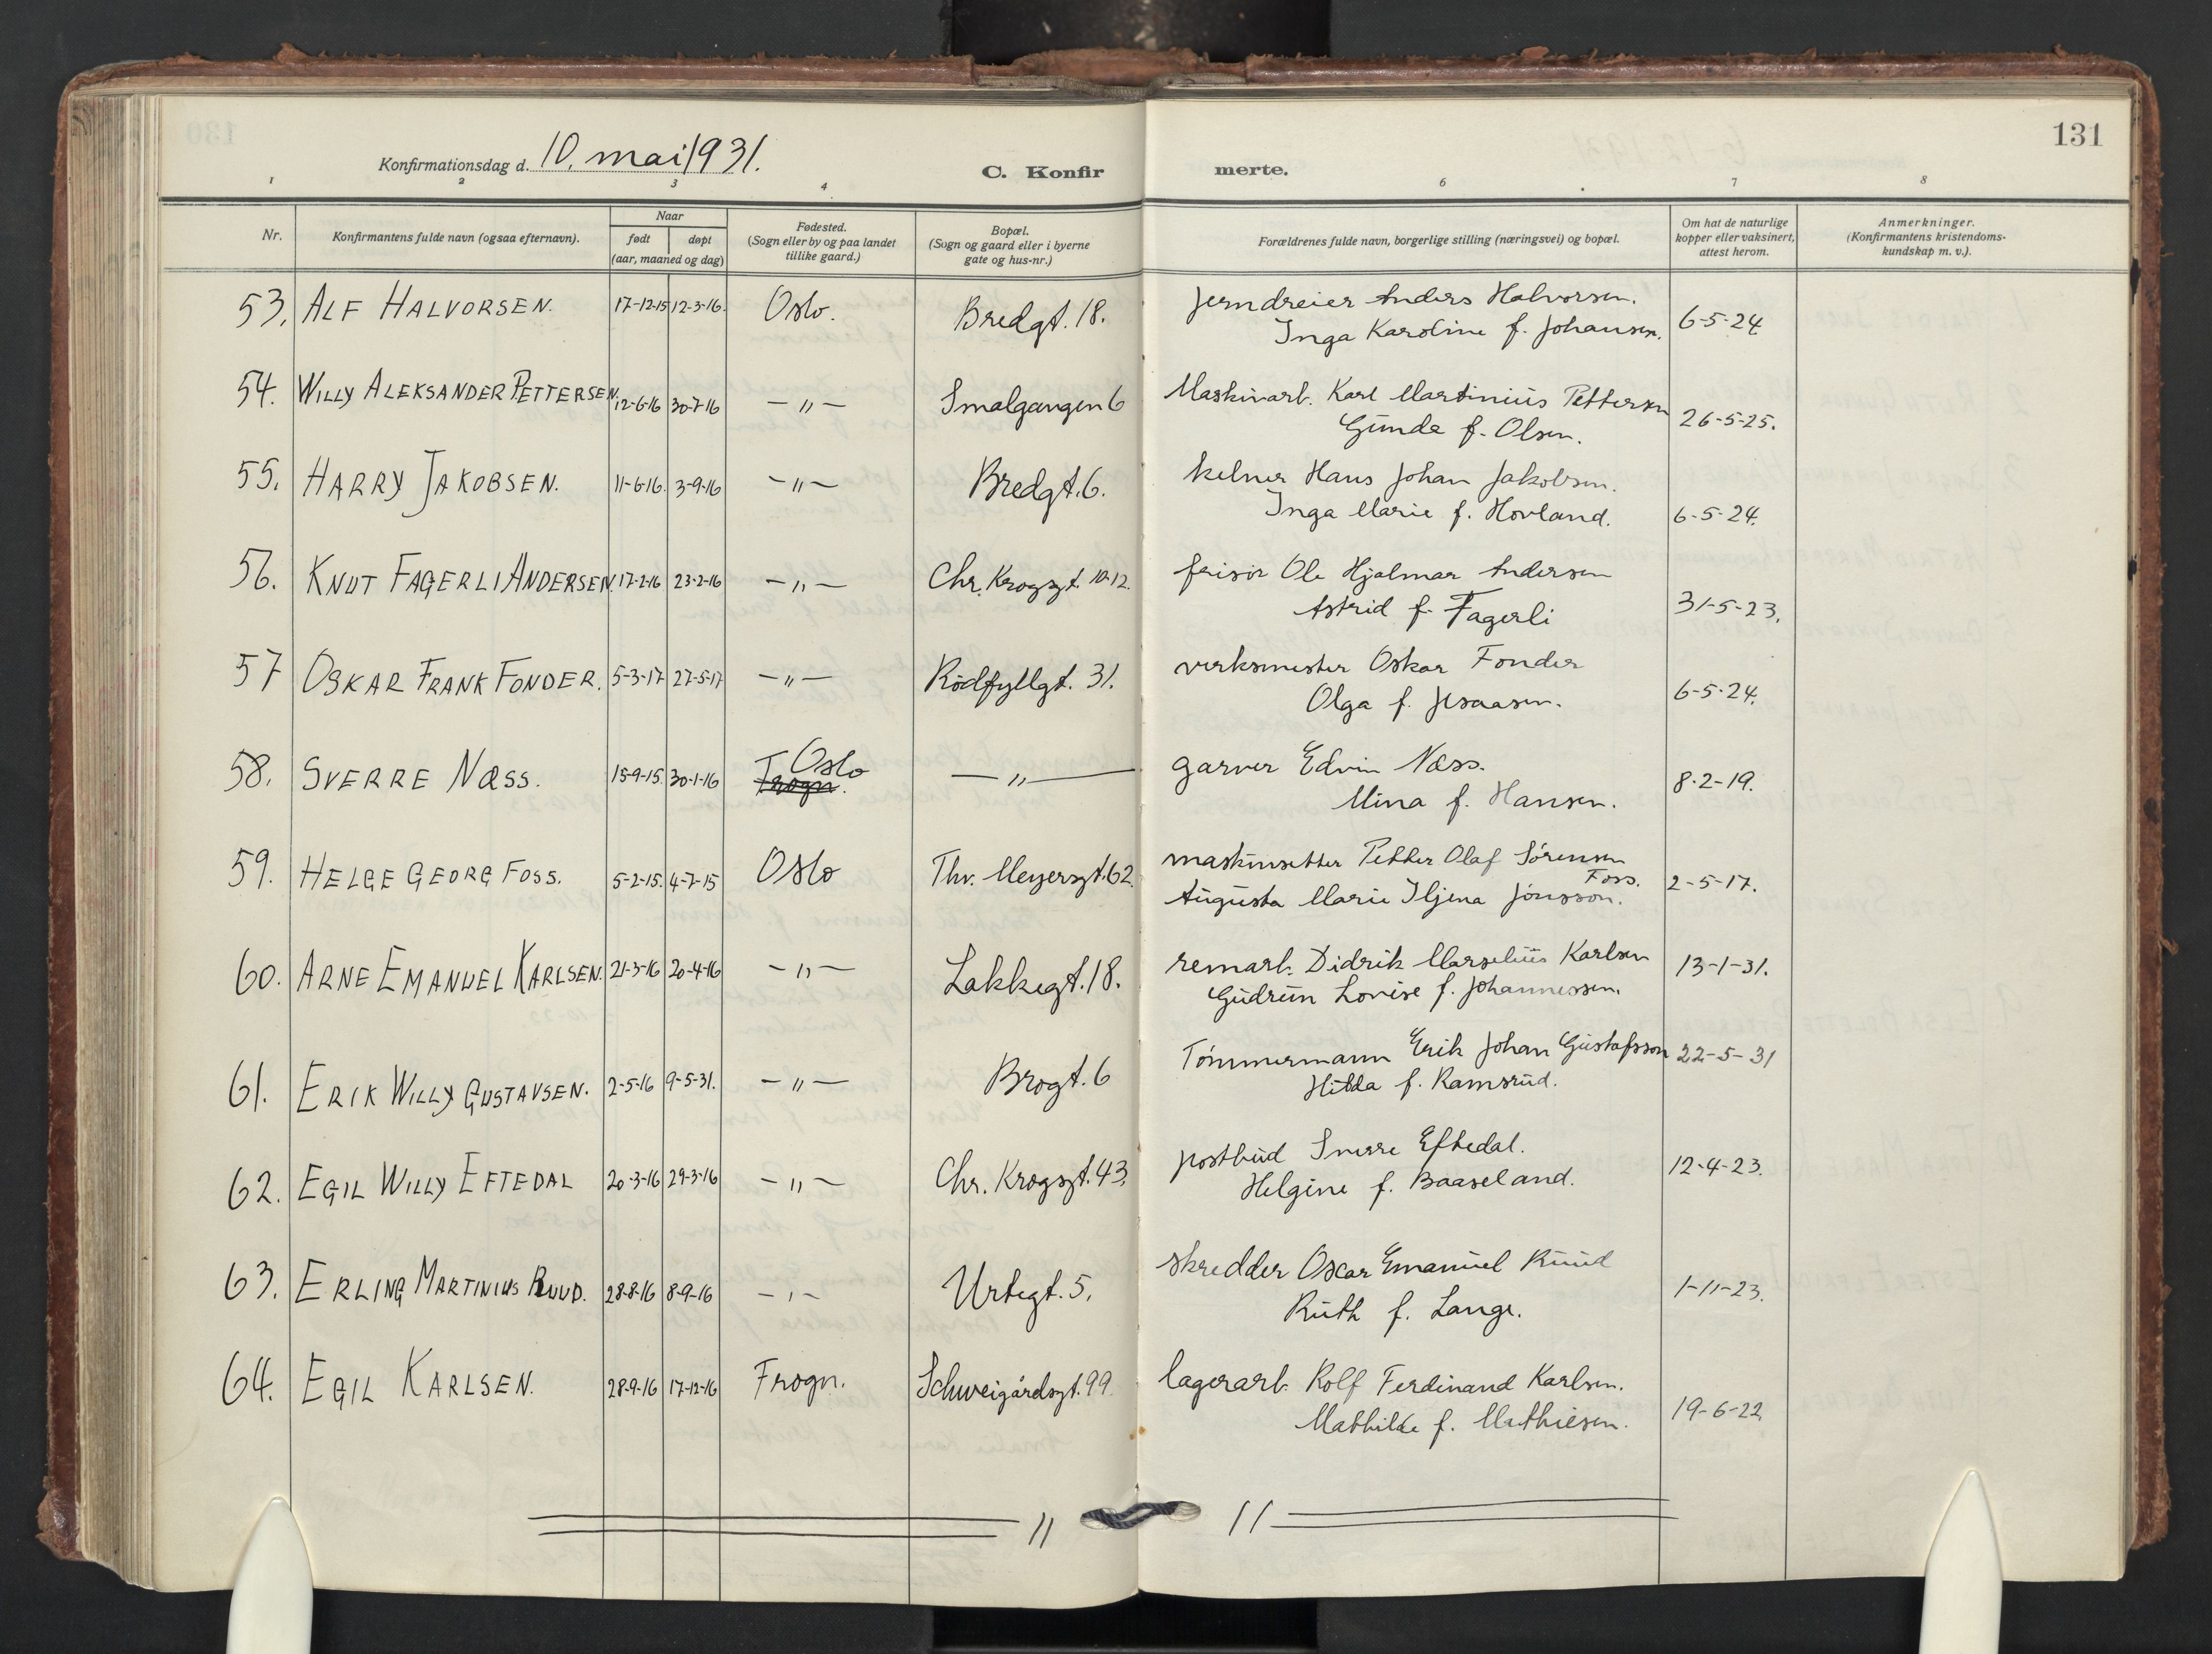 131
Konfirmationsdag d. 10. mai 1931.
C. Konfir merte.
1 2 3 4 6 7 8
Nr.
Konfirmantens fulde navn (ogsaa efternavn).
Naar
født døpt
(aar, maaned og dag)
Fødested.
(Sogn eller by og paa landet
tillike gaard.)
Bopæl.
(Sogn og gaard eller i byerne
gate og hus-nr.)
Forældrenes fulde navn, borgerlige stilling (næringsvei) og bopæl.
Om hat de naturlige
kopper eller vaksinert,
attest herom.
Anmerkninger.
(Konfirmantens kristendoms-
kundskap m. v.).
53. ALF HALVORSEN. 17-12-15 12-3-16. Oslo. Bredgt. 18. Jerndreier Anders Halvorsen.
Inga Karoline f. Johansen. 6-5-24.
54. WILLY ALEKSANDER PETTERSEN. 12-6-16 30-7-16 —〃— Smalgangen 6 Maskinarb. Karl Martinius Pettersen
Gunda f. Olsen. 26-5-25.
55. HARRY JAKOBSEN. 11-6-16. 3-9-16 —〃— Bredgt. 6. kelner Hans Johan Jakobsen.
Inga Marie f. Hovland. 6-5-24.
56. KNUT FAGERLI ANDERSEN. 17-2-16 23-2-16 —〃— Chr. Krogsgt. 10-12. frisør Ole Hjalmar Andersen
Astrid f. Fagerli 31-5-23.
57 OSKAR FRANK FONDER. 5-3-17 27-5-17 —〃— Rødfyllgt. 31. verksmester Oskar Fonder
Olga f. Jsaasen. 6-5-24.
58. SVERRE NÆSS. 15-9-15. 30-1-16 Oslo
Frogn. —〃— garver Edvin Næss.
Mina f. Hansen. 8-2-19.
59. HELGE GEORG FOSS. 5-2-15. 4-7-15 Oslo Thv. Meyersgt. 62. maskinsetter Petter Olaf Sørensen
Foss.
Augusta Marie Iljena Jonsson. 2-5-17.
60. ARNE EMANUEL KARLSEN. 21-3-16 20-4-16 —〃— Lakkegt. 18. remarb. Didrik Marselius Karlsen
Gudrun Lovise f. Johannessen. 13-1-31.
61. ERIK WILLY GUSTAVSEN. 2-5-16 9-5-31. —〃— Brogt. 6 Tømmermann Erik Johan Gustafsson
Hilda f. Ramsrud. 22-5-31
62. EGIL WILLY EFTEDAL 20-3-16 29-3-16 —〃— Chr. Krogsgt. 43. postbud Sverre Eftedal.
Helgine f. Baaseland. 12-4-23.
63. ERLING MARTINIUS RUUD. 28-8-16 8-9-16 —〃— Urtegt. 5. skredder Oscar Emanuel Ruud
Ruth f. Lange. 1-11-23.
64. EGIL KARLSEN. 28-9-16 17-12-16 Frogn. Schweigårdsgt. 99. lagerarb. Rolf Ferdinand Karlsen.
Mathilde f. Mathiesen. 19-6-22